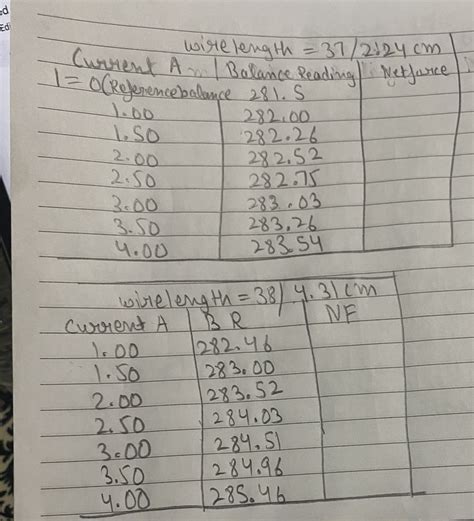 ed
Edi
wire length = 37/2.24 cm
Current A | Balance Reading | Net force
I = 0 (Reference balance 281.5
1.00 282.00
1.50 282.26
2.00 282.52
2.50 282.75
3.00 283.03
3.50 283.26
4.00 283.54
wire length = 38/4.31 cm
Current A | B R | NF
1.00 282.46
1.50 283.00
2.00 283.52
2.50 284.03
3.00 284.51
3.50 284.96
4.00 285.46